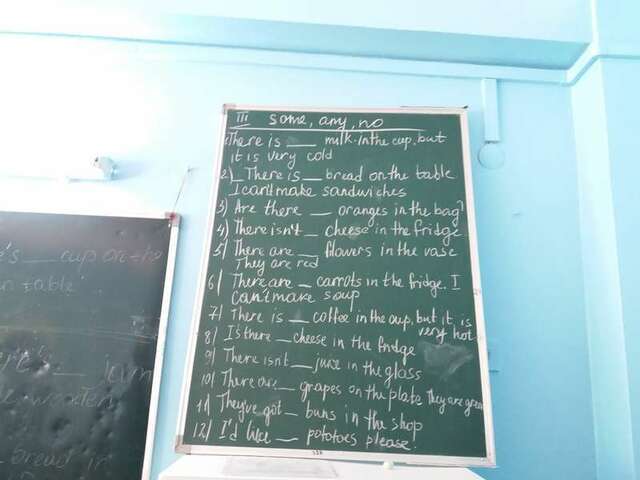 III some, any, no
1) There is ___ milk in the cup, but
it is very cold
2) There is ___ bread on the table.
I can't make sandwiches
3) Are there ___ oranges in the bag?
4) There isn't ___ cheese in the fridge.
5) There are ___ flowers in the vase
They are red
6) There are ___ carrots in the fridge. I
can't make soup
7) There is ___ coffee in the cup, but it is
very hot
8) Is there ___ cheese in the fridge
9) There isn't ___ juice in the glass
10) There are ___ grapes on the plate. They are green
11) They've got ___ buns in the shop
12) I'd like ___ potatoes please.
's ___ cup on the
table
___
wooden
bread in